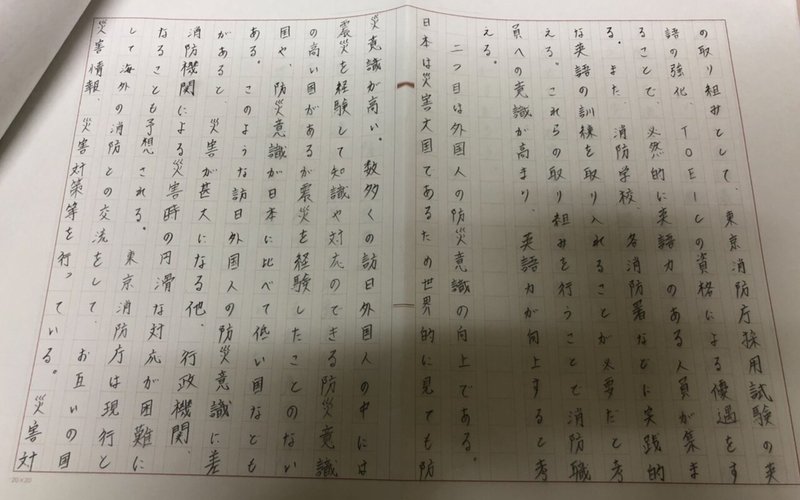 の取り組みとして、東京消防庁採用試験の英
語の強化、TOEICの資格による優遇をす
ることで、必然的に英語力のある人員が集ま
る。また、消防学校、各消防署などに実践的
な英語の訓練を取り入れることが必要だと考
える。これらの取り組みを行うことで消防職
員への意識が高まり、英語力が向上すると考
える。
二つ目は外国人の防災意識の向上である。
日本は災害大国であるため世界的に見ても防
災意識が高い。数多くの訪日外国人の中には
震災を経験して知識や対応のできる防災意識
の高い国があるが震災を経験したことのない
国や、防災意識が日本に比べて低い国なども
ある。このような訪日外国人の防災意識に差
があると、災害が甚大になる他、行政機関、
消防機関による災害時の円滑な対応が困難に
なることも予想される。東京消防庁は現行と
して海外の消防との交流をして、お互いの国
災害情報、災害対策等を行っている。災害対
20×20